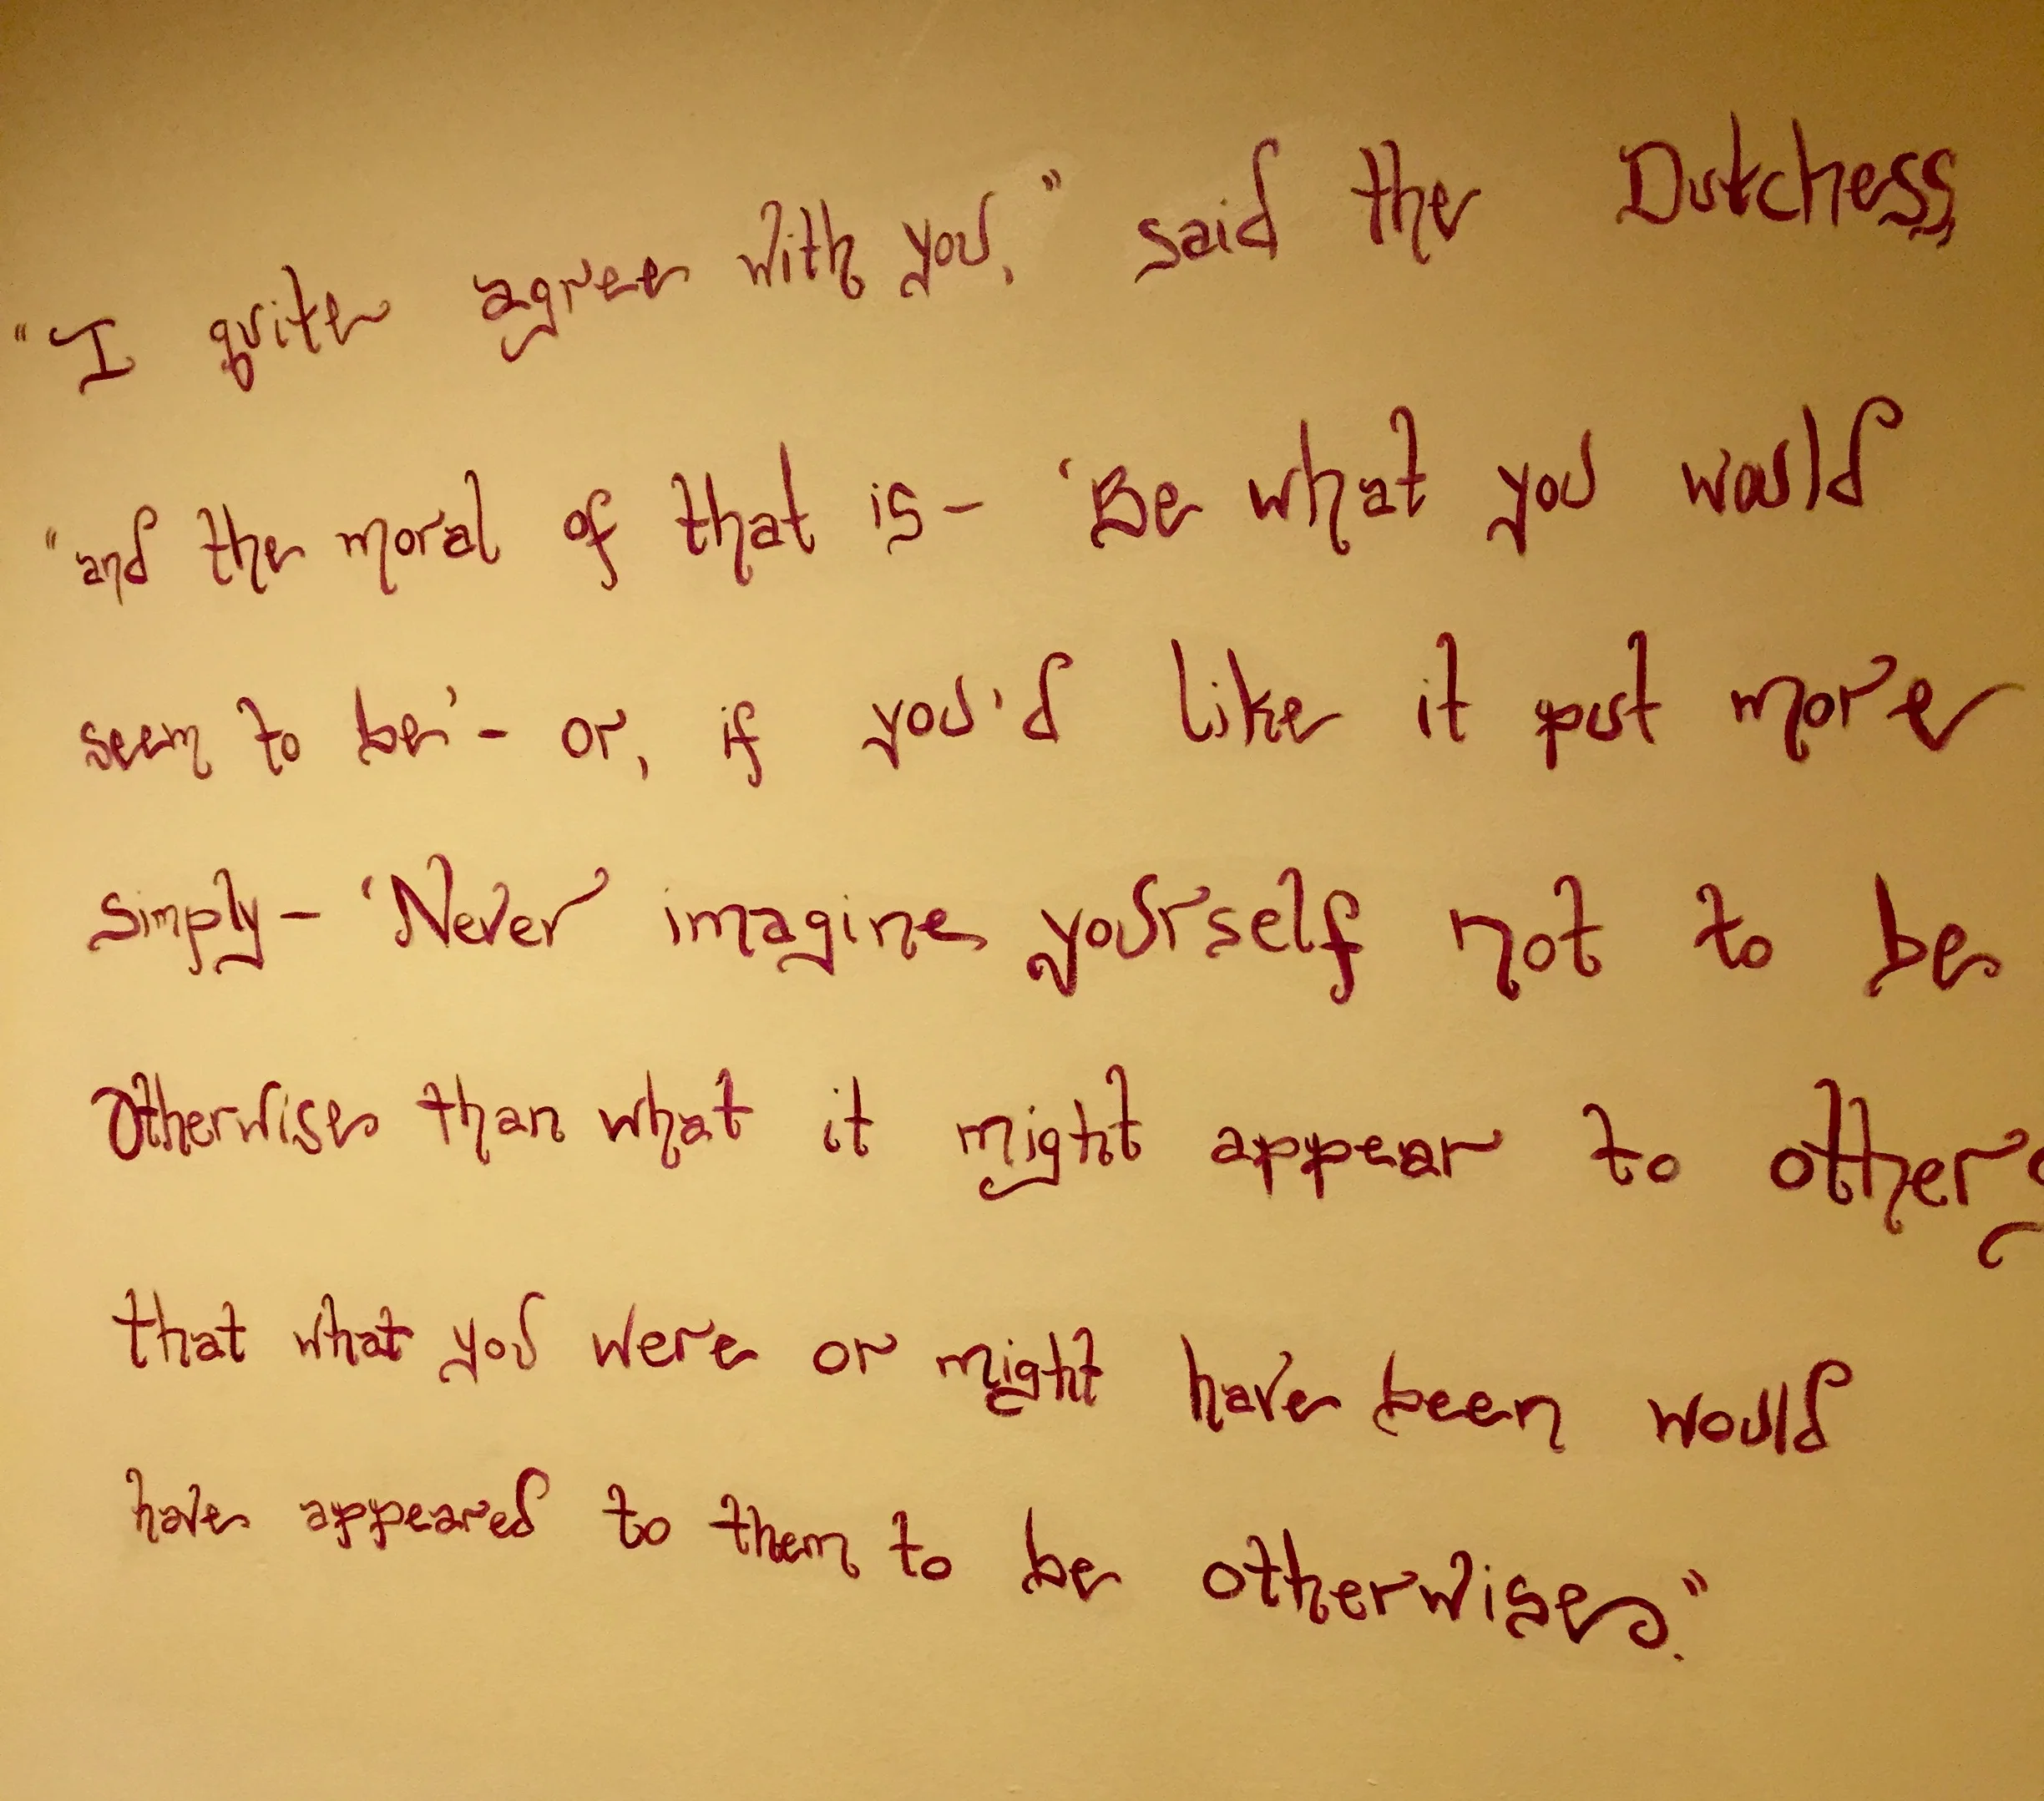 "I quite agree with you," said the Dutchess,
"and the moral of that is - 'Be what you would
seem to be' - or, if you'd like it put more
simply - 'Never imagine yourself not to be
otherwise than what it might appear to others
that what you were or might have been would
have appeared to them to be otherwise."